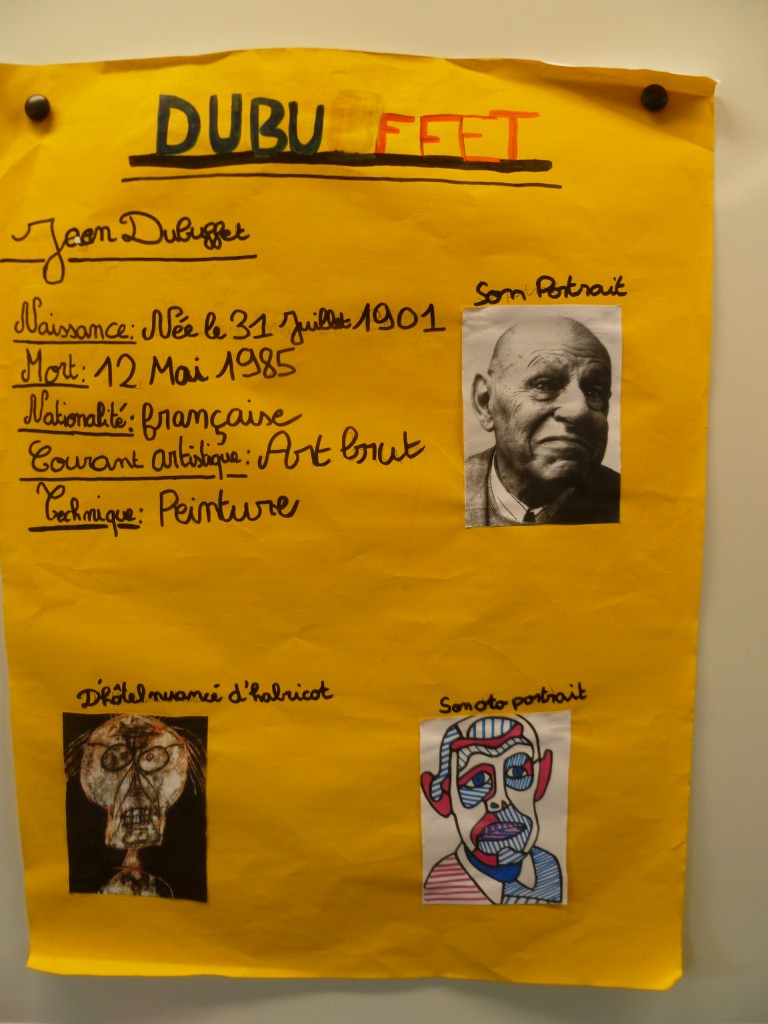 DUBUFFET
Jean Dubuffet
Son Portrait
Naissance: Née le 31 Juillet 1901
Mort: 12 Mai 1985
Nationalité: française
Courant artistique: Art brut
Technique: Peinture
D'hôtel nuancé d'habricot
Son oto portrait